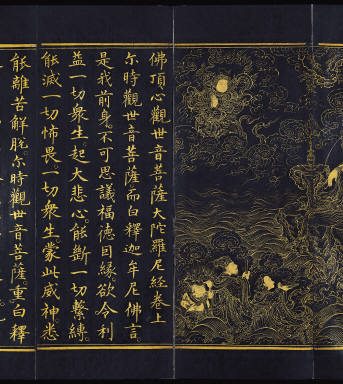 佛頂心觀世音菩薩大陀羅尼經卷上
尒時觀世音菩薩而白釋迦牟尼佛言
是我前身。不可思議福德因緣欲令利
益一切衆生。起大悲心。能斷一切繫縛。
能滅一切怖畏。一切衆生。蒙此威神悉
能離苦解脫。尒時觀世音菩薩。重白釋